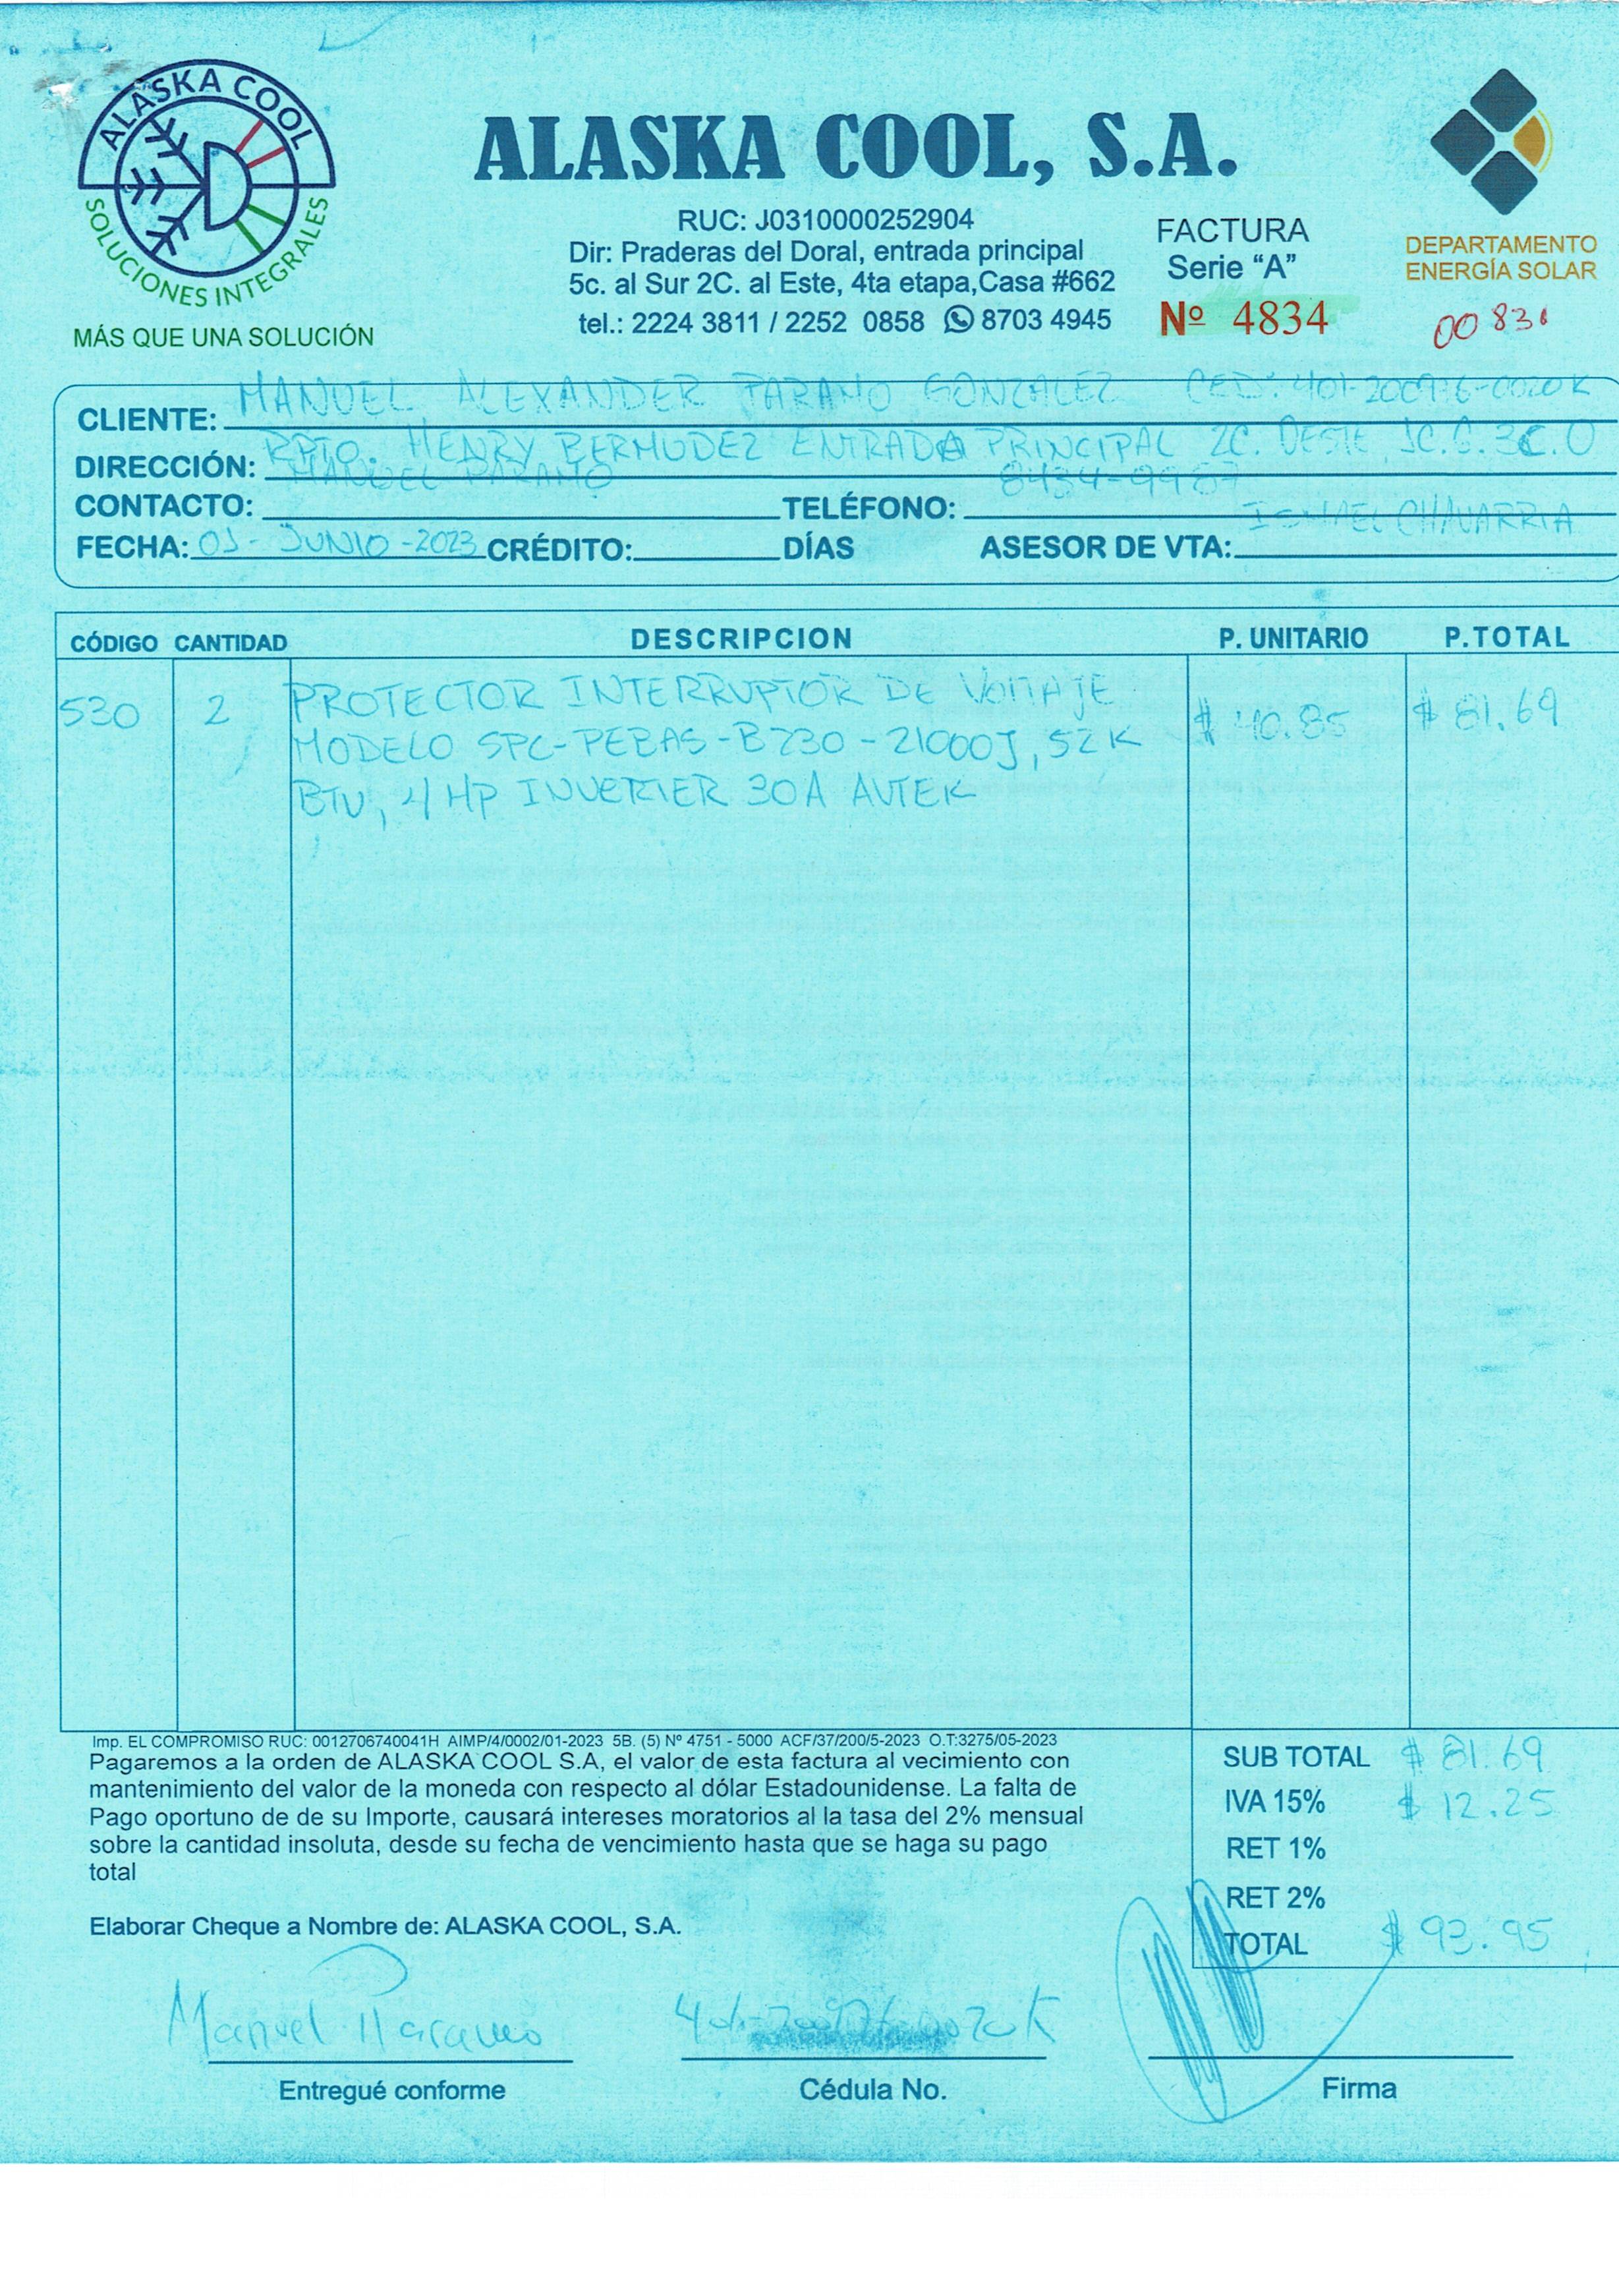 ALASKA COOL
SOLUCIONES INTEGRALES
MÁS QUE UNA SOLUCIÓN
ALASKA COOL, S.A.
RUC: J0310000252904
Dir: Praderas del Doral, entrada principal
5c. al Sur 2C. al Este, 4ta etapa,Casa #662
tel.: 2224 3811 / 2252 0858 8703 4945
FACTURA
Serie “A”
Nº 4834
DEPARTAMENTO
ENERGÍA SOLAR
00831
CLIENTE: MANUEL ALEXANDER PARAMO GONZALEZ CED: 401-200976-0020K
DIRECCIÓN: RPTO. HENRY BERMUDEZ ENTRADA PRINCIPAL 2C. OESTE, 1C.S. 3C.O
CONTACTO: MANUEL PARAMO TELÉFONO: 8434-9987
FECHA: 01-JUNIO-2023 CRÉDITO: DÍAS ASESOR DE VTA: ISMAEL CHAVARRIA
CÓDIGO CANTIDAD DESCRIPCION P. UNITARIO P.TOTAL
530 2 PROTECTOR INTERRUPTOR DE VOLTAJE $ 40.85 $ 81.69
MODELO SPC-PEBAS-B230-21000J, 52K
BTU, 4 HP INVERTER 30A AVTEK
Imp. EL COMPROMISO RUC: 0012706740041H AIMP/4/0002/01-2023 5B. (5) Nº 4751 - 5000 ACF/37/200/5-2023 O.T:3275/05-2023
Pagaremos a la orden de ALASKA COOL S.A, el valor de esta factura al vecimiento con
mantenimiento del valor de la moneda con respecto al dólar Estadounidense. La falta de
Pago oportuno de de su Importe, causará intereses moratorios al la tasa del 2% mensual
sobre la cantidad insoluta, desde su fecha de vencimiento hasta que se haga su pago
total
Elaborar Cheque a Nombre de: ALASKA COOL, S.A.
SUB TOTAL $ 81.69
IVA 15% $ 12.25
RET 1%
RET 2%
TOTAL $ 93.95
Manuel Paramo 401-200976-0020K
Entregué conforme Cédula No. Firma